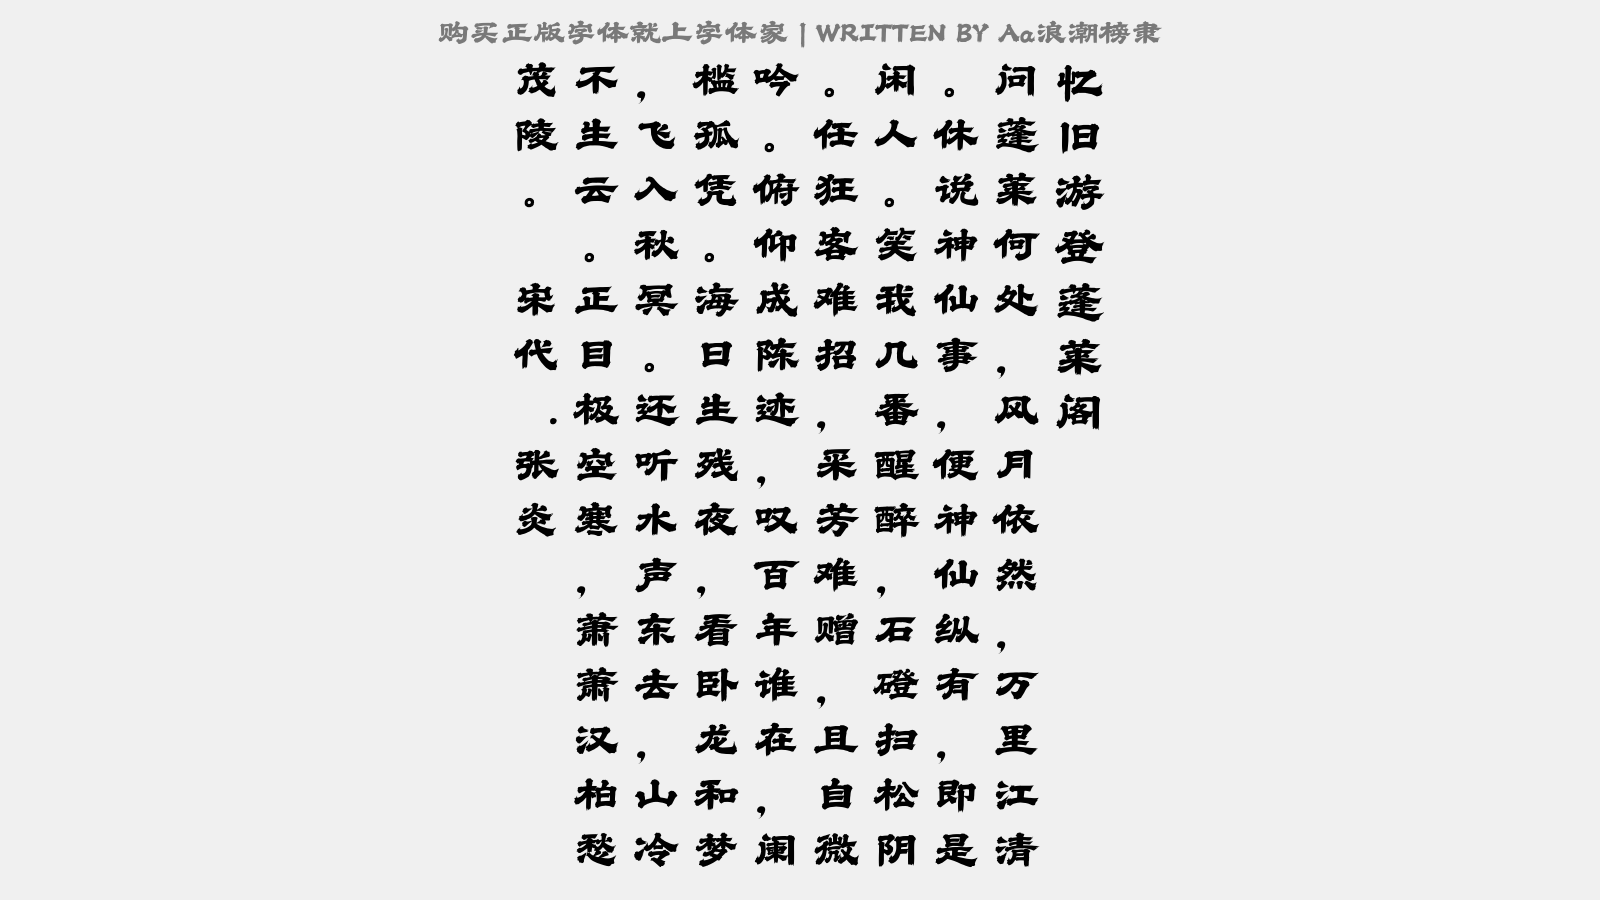 购买正版字体就上字体家 | WRITTEN BY Aa浪潮榜隶
忆旧游登蓬莱阁
问蓬莱何处，风月依然，万里江清
。休说神仙事，便神仙纵有，即是
闲人。笑我几番醒醉，石磴扫松阴
。任狂客难招，采芳难赠，且自微
吟。俯仰成陈迹，叹百年谁在，阑
槛孤凭。海日生残夜，看卧龙和梦
，飞入秋冥。还听水声东去，山冷
不生云。正目极空寒，萧萧汉柏愁
茂陵。
宋代.张炎